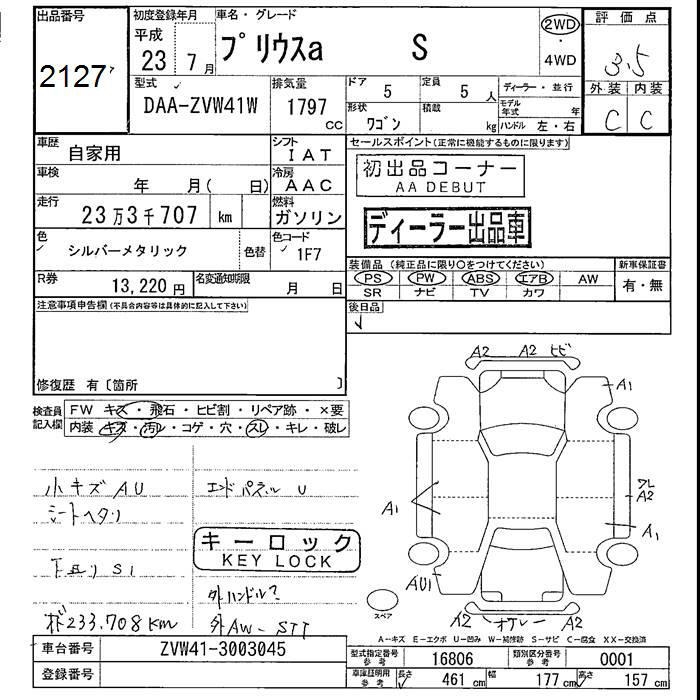 出品番号
2127
初度登録年月
平成
23年 7月
車名・グレード
プリウスa S
2WD
・
4WD
評価点
3.5
外装 内装
C C
型式
DAA-ZVW41W
排気量
1797
cc
ドア 5
定員 5 人
形状 ワゴン
積載 kg
ディーラー・並行
モデル年式 年
ハンドル 左・右
車歴 自家用
シフト IAT
車検 年 月( 日)
冷房 AAC
走行 23万3千707 km
燃料 ガソリン
色 シルバーメタリック 色替
色コード 1F7
R券 13,220円
名変通知期限 月 日
セールスポイント(正常に機能するものに限ります)
初出品コーナー
AA DEBUT
ディーラー出品車
装備品 (純正品に限り○をつけてください)
新車保証書
PS PW ABS エアB AW
有・無
SR ナビ TV カワ
後日品
注意事項申告欄(不具合内容等は具体的に記入して下さい)
修復歴 有〔箇所 〕
検査員記入欄
FW キズ・飛石・ヒビ割・リペア跡・×要
内装 キズ・汚レ・コゲ・穴・スレ・キレ・破レ
小キズAU
シートヘタリ
エンドパネル U
キーロック
KEY LOCK
下廻りS1
外ハンドル?
メ233,708km
外AW-STT
A2 A2 ヒビ
A1
A1
A2
A1
AU1
スペア
A2 A2
A-キズ E-エクボ U-凹み W-補修跡 S-サビ C-腐食 XX-交換済
車台番号 ZVW41-3003045
登録番号
型式指定番号参考 16806
類別区分番号参考 0001
車庫証明用参考 長さ 461 cm 幅 177 cm 高さ 157 cm